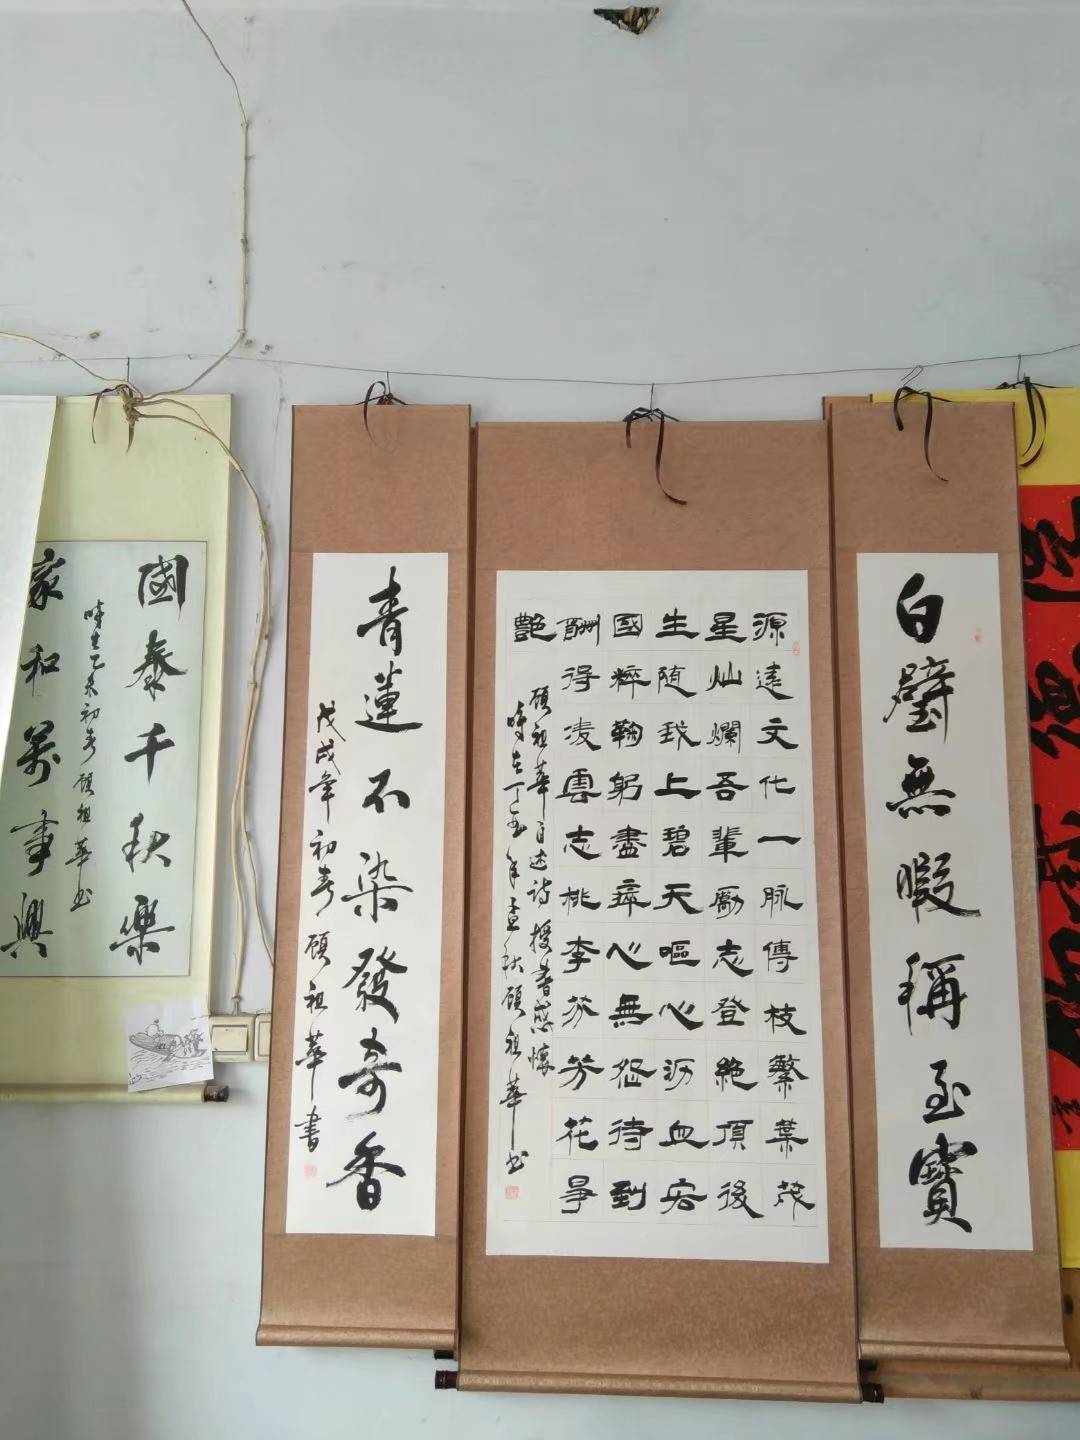 白璧無暇稱至寶
源遠文化一脉傳枝繁葉茂
星灿爛吾輩勵志登絶頂後
生随我上碧天嘔心沥血宏
國粹鞠躬盡瘁心無怨待到
酬得凌雲志桃李芬芳花爭
艷
顾祖華自述诗授書感懷
時在丁酉年孟秋顾祖華书
青蓮不染發奇香
戊戌年初春顾祖華書
國泰千秋樂
家和萬事興
時在乙未初春顾祖華书